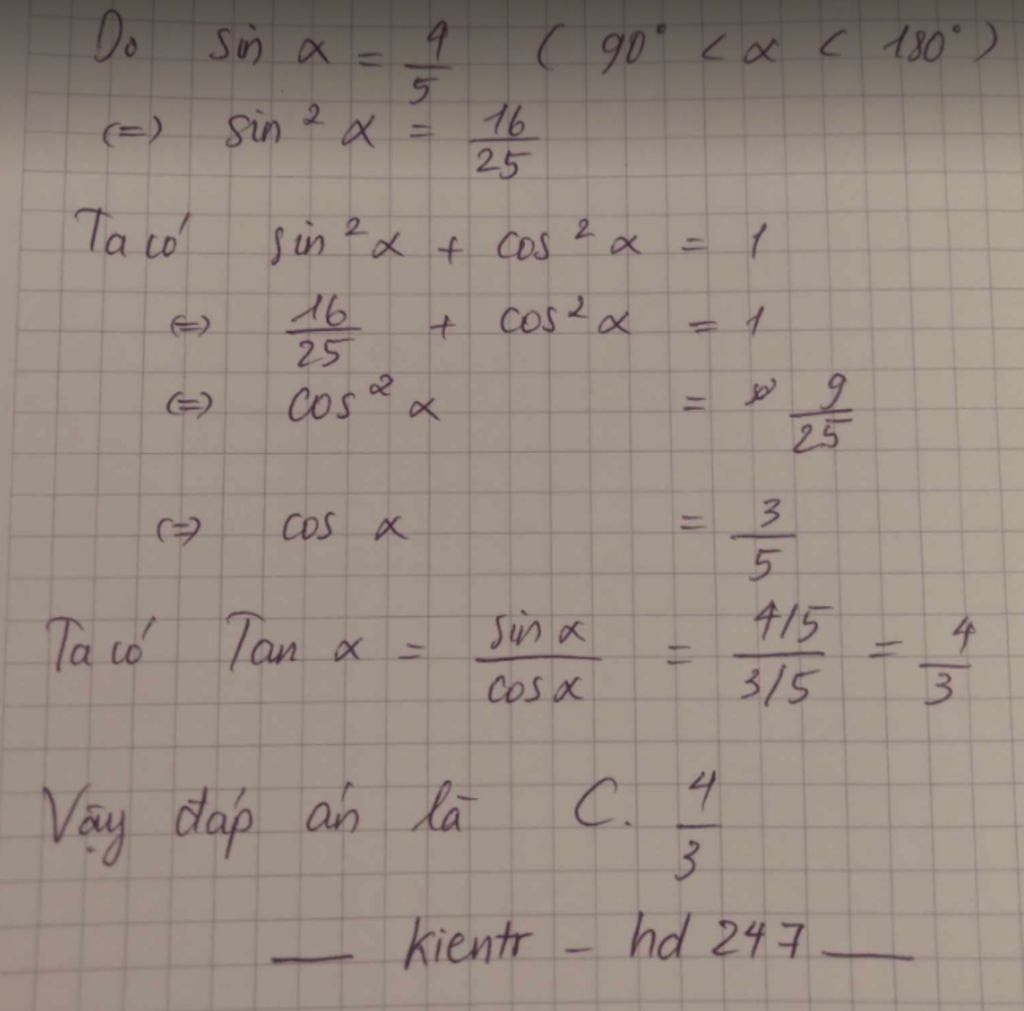 Do sin α = 4/5 ( 90° < α < 180° )
(=) sin² α = 16/25
Ta có sin² α + cos² α = 1
(=) 16/25 + cos² α = 1
(=) cos² α = 9/25
(=) cos α = 3/5
Ta có Tan α = sin α / cos α = 4/5 / 3/5 = 4/3
Vậy đáp án là C. 4/3
— kientr - hd 247 —